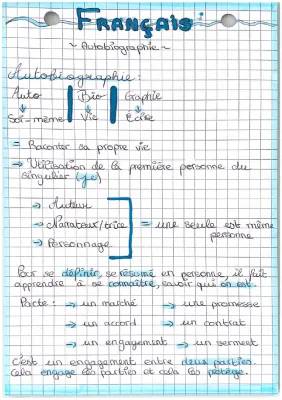 FRANÇAIS:
~ Autobiographie ~
Autobiographie:
Auto | Bio | Graphie
↓ ↓ ↓
Soi-même Vie Écrire
= Raconter sa propre vie
→ Utilisation de la première personne du
singulier (je)
→ Auteur
→ Narrateur/trice = une seule est même
personne
→ Personnage
Par se définir, se résumé en personne, il fait
apprendre à se connaître, savoir qui on est.
Pacte: → un marché → une promesse
→ un accord → un contrat
→ un engagement → un serment
C'est un engagement entre deux parties.
Cela engage les parties et cela les protège.